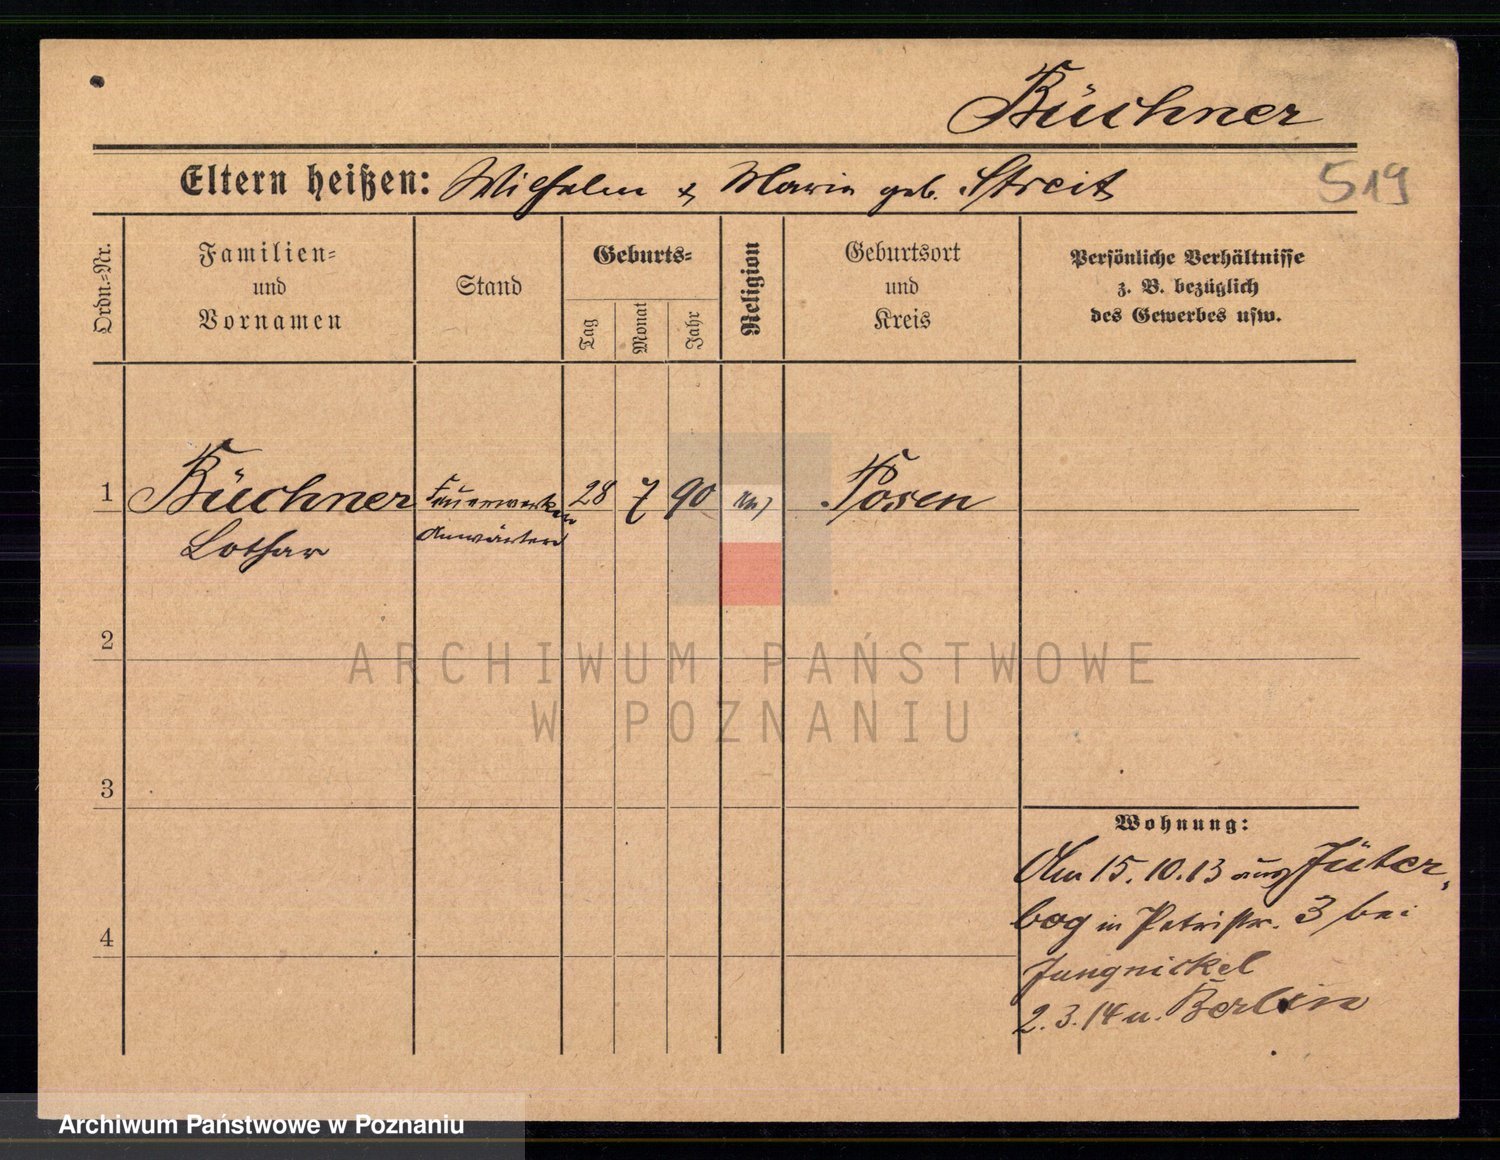 Büchner
Eltern heißen: Wilhelm & Maria geb. Streit
519
Ordn.-Nr.
Familien-
und
Vornamen
Stand
Geburts-
Tag
Monat
Jahr
Religion
Geburtsort
und
Kreis
Persönliche Verhältnisse
z. B. bezüglich
des Gewerbes usw.
1
Büchner
Lothar
Feuerwerker
Anwärter
28
7
90
Posen
2
ARCHIWUM PAŃSTWOWE
W POZNANIU
3
Wohnung:
Am 15.10.13 aus Jüter-
bog in Petristr. 3 bei
Jungnickel
2.3.14 u. Berlin
4
Archiwum Państwowe w Poznaniu